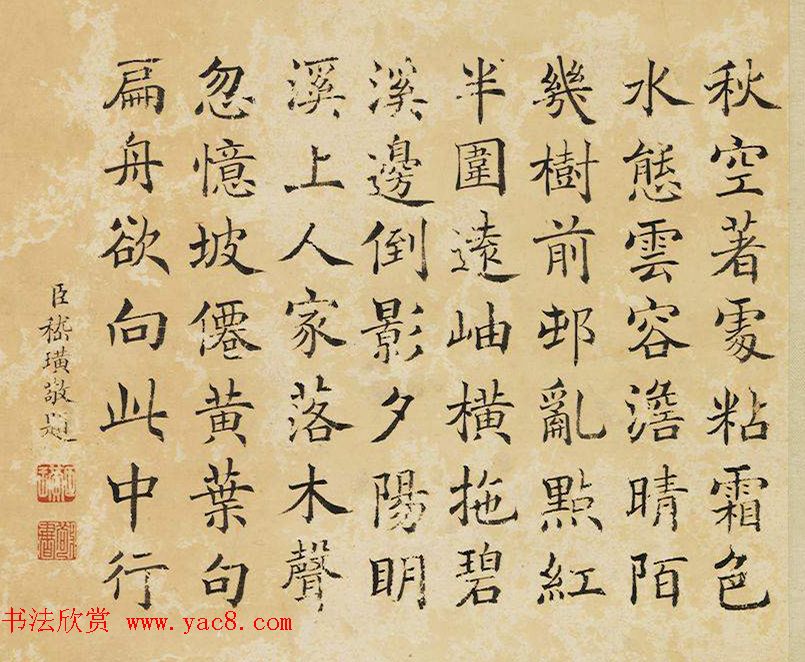 秋空著處粘霜色
水態雲容澹晴陌
幾樹前邨亂點紅
半圍遠岫橫拖碧
溪邊倒影夕陽明
溪上人家落木聲
忽憶坡僊黃葉句
扁舟欲向此中行
臣嵇璜敬題
书法欣赏 www.yac8.com